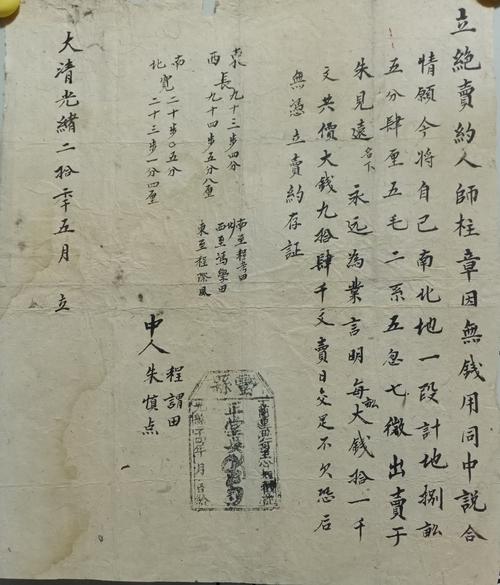 立絶賣約人師柱章因無錢用同中説合
情願今將自己南北地一段計地捌畝
五分肆厘五毛二系五忽七微出賣于
朱見遠名下永远為業言明每畝大錢拾一千
文共價大錢九拾肆千文賣日交足不欠恐后
無憑立賣約存証
東長九十三步四分
西九十四步五分八厘
南寬二十步〇五分
北二十三步一分四厘
南至程
西至馮學田
東至程際風
中人程謂田
朱慎点
大清光緒二拾年五月立
縣
正堂吳